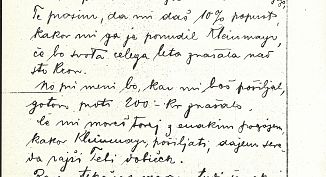 Te prosim, da mi daš 10% popust,
kakor mi ga je ponudil Kleinmayr,
če bo svota celega leta znašala nad
sto Kron.
No pri meni bo, kar mi boš pošiljal,
gotovo proti 200 - Kr znašalo.
Če mi moreš torej z enakim pogojem,
kakor Kleinmayr, pošiljati, dajem seve-
da rajši Tebi dobiček.